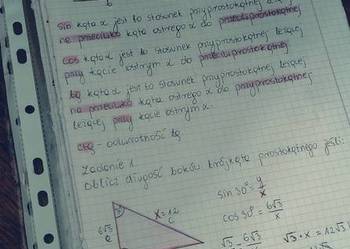 b
sin kąta α jest to stosunek przyprostokątnej leżącej
na przeciwko kąta ostrego α do przeciwprostokątnej
cos kąta α jest to stosunek przyprostokątnej leżącej
przy kącie ostrym α do przeciwprostokątnej
tg kąta α jest to stosunek przyprostokątnej leżącej
na przeciwko kąta ostrego α do przyprostokątnej
leżącej przy kącie ostrym α.
ctg - odwrotność tg
Zadanie 1
Oblicz długość boków trójkąta prostokątnego jeśli:
6√3
x=12
c
sin 30°= y/x
cos 30°= 6√3/x
√3 6√3
√3·x = 12√3